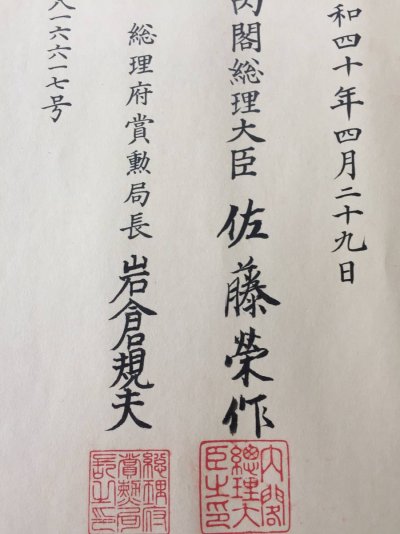 和四十年四月二十九日
内閣総理大臣 佐藤榮作
総理府賞勲局長 岩倉規夫
八一六六一七号
内閣総理大臣之印
総理府賞勲局長之印